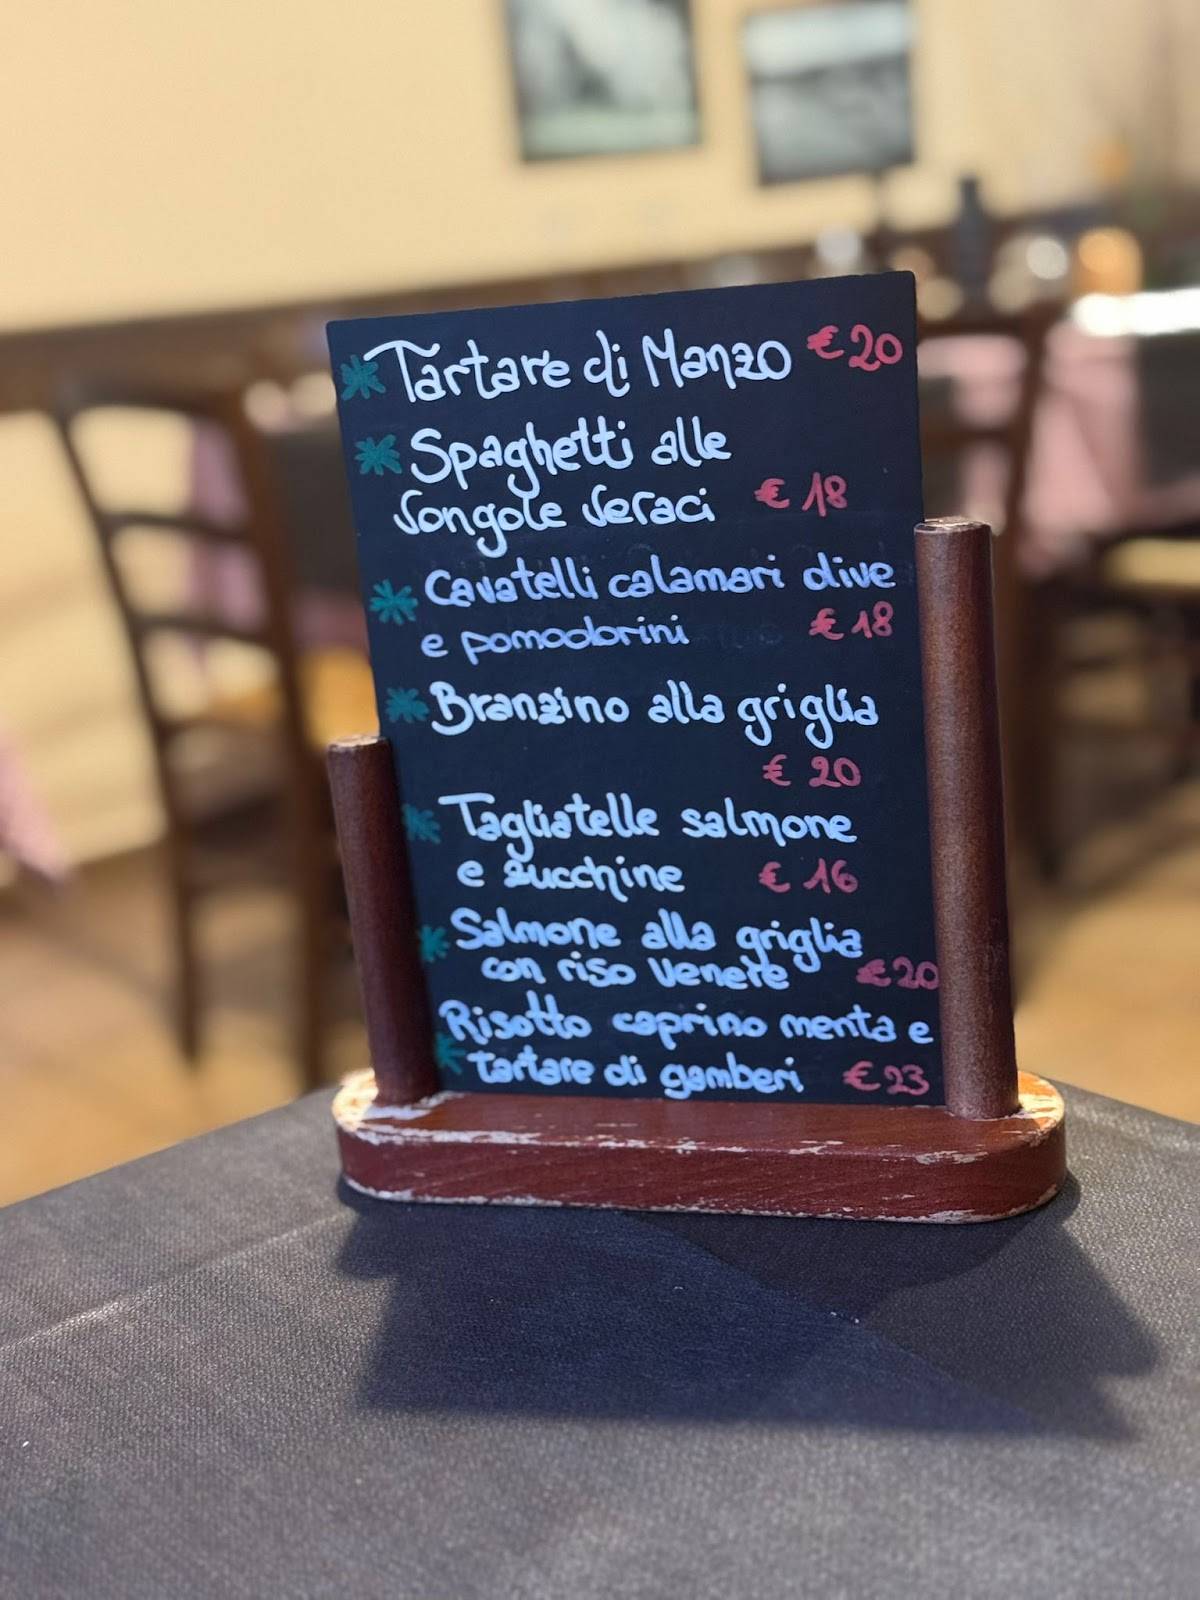 Tartare di Manzo €20
Spaghetti alle
Vongole Veraci €18
Cavatelli calamari olive
e pomodorini €18
Branzino alla griglia
€20
Tagliatelle salmone
e zucchine €16
Salmone alla griglia
con riso venere €20
Risotto caprino menta e
tartare di gamberi €23